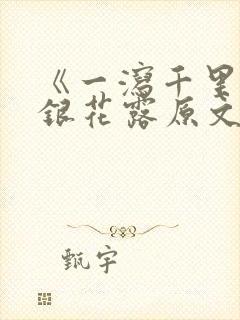 《一泻千里
银花露原文
甄宇